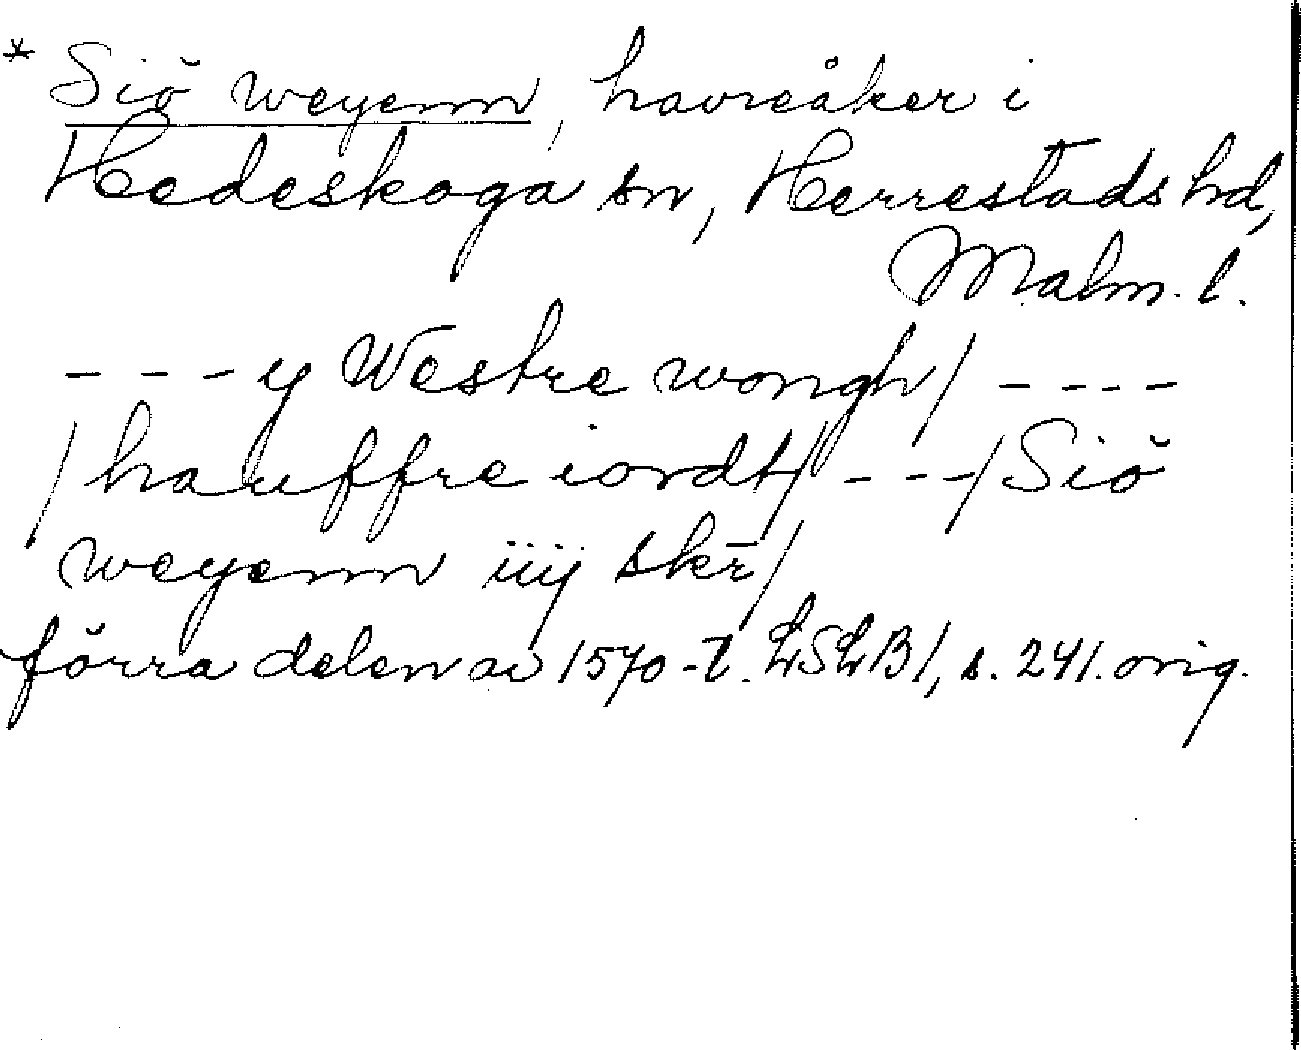 * Siö weyenn, havreåker i
Hedeskoga sn, Herrestads hd,
Malm. l.
- - - y Westre wongh/ - - - -
/hauffre iordt/ - - -/Siö
weyenn iiij skr̄/
förra delen av 1570-t. LSLB1, s. 241. orig.